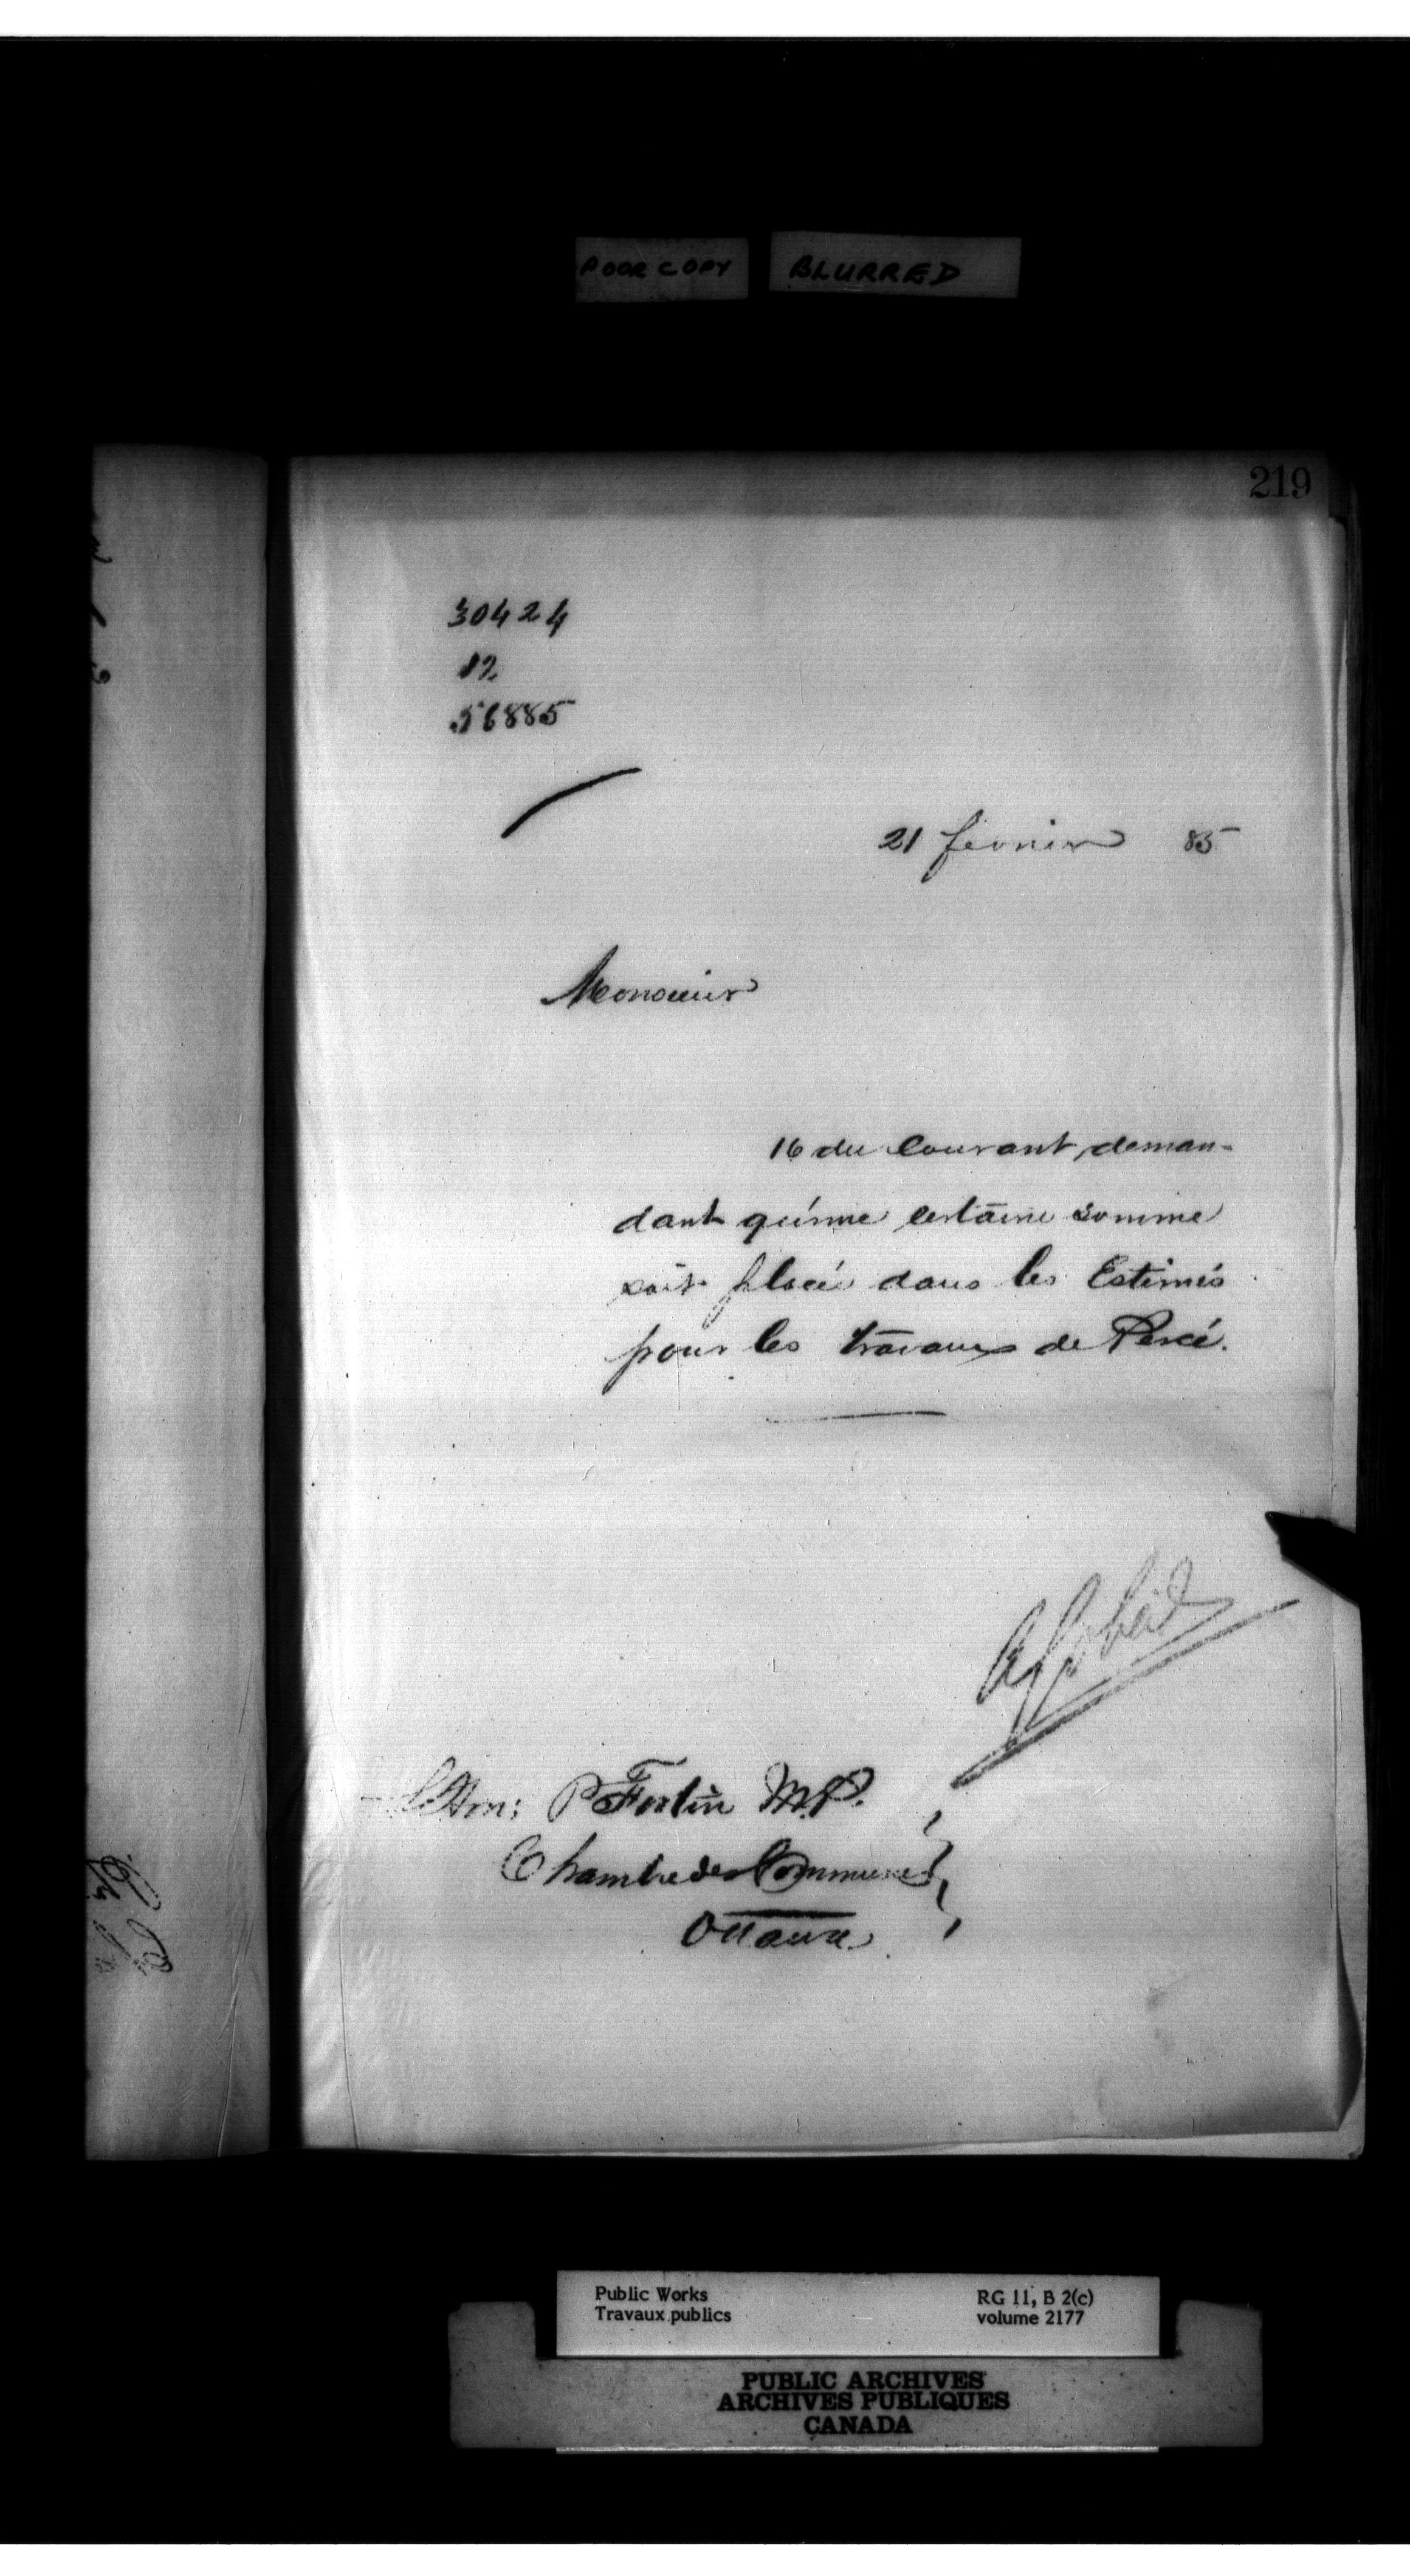 POOR COPY BLURRED
219
30424
12
56885
21 février 85
Monsieur
16 du Courant, deman-
dant qu'une certaine somme
soit placée dans les Estimés
pour les travaux de Percé.
A Gobeil
L'Hon: P Fortin M.P.
Chambre des Communes
Ottawa
Public Works
Travaux publics
RG 11, B 2(c)
volume 2177
PUBLIC ARCHIVES
ARCHIVES PUBLIQUES
CANADA